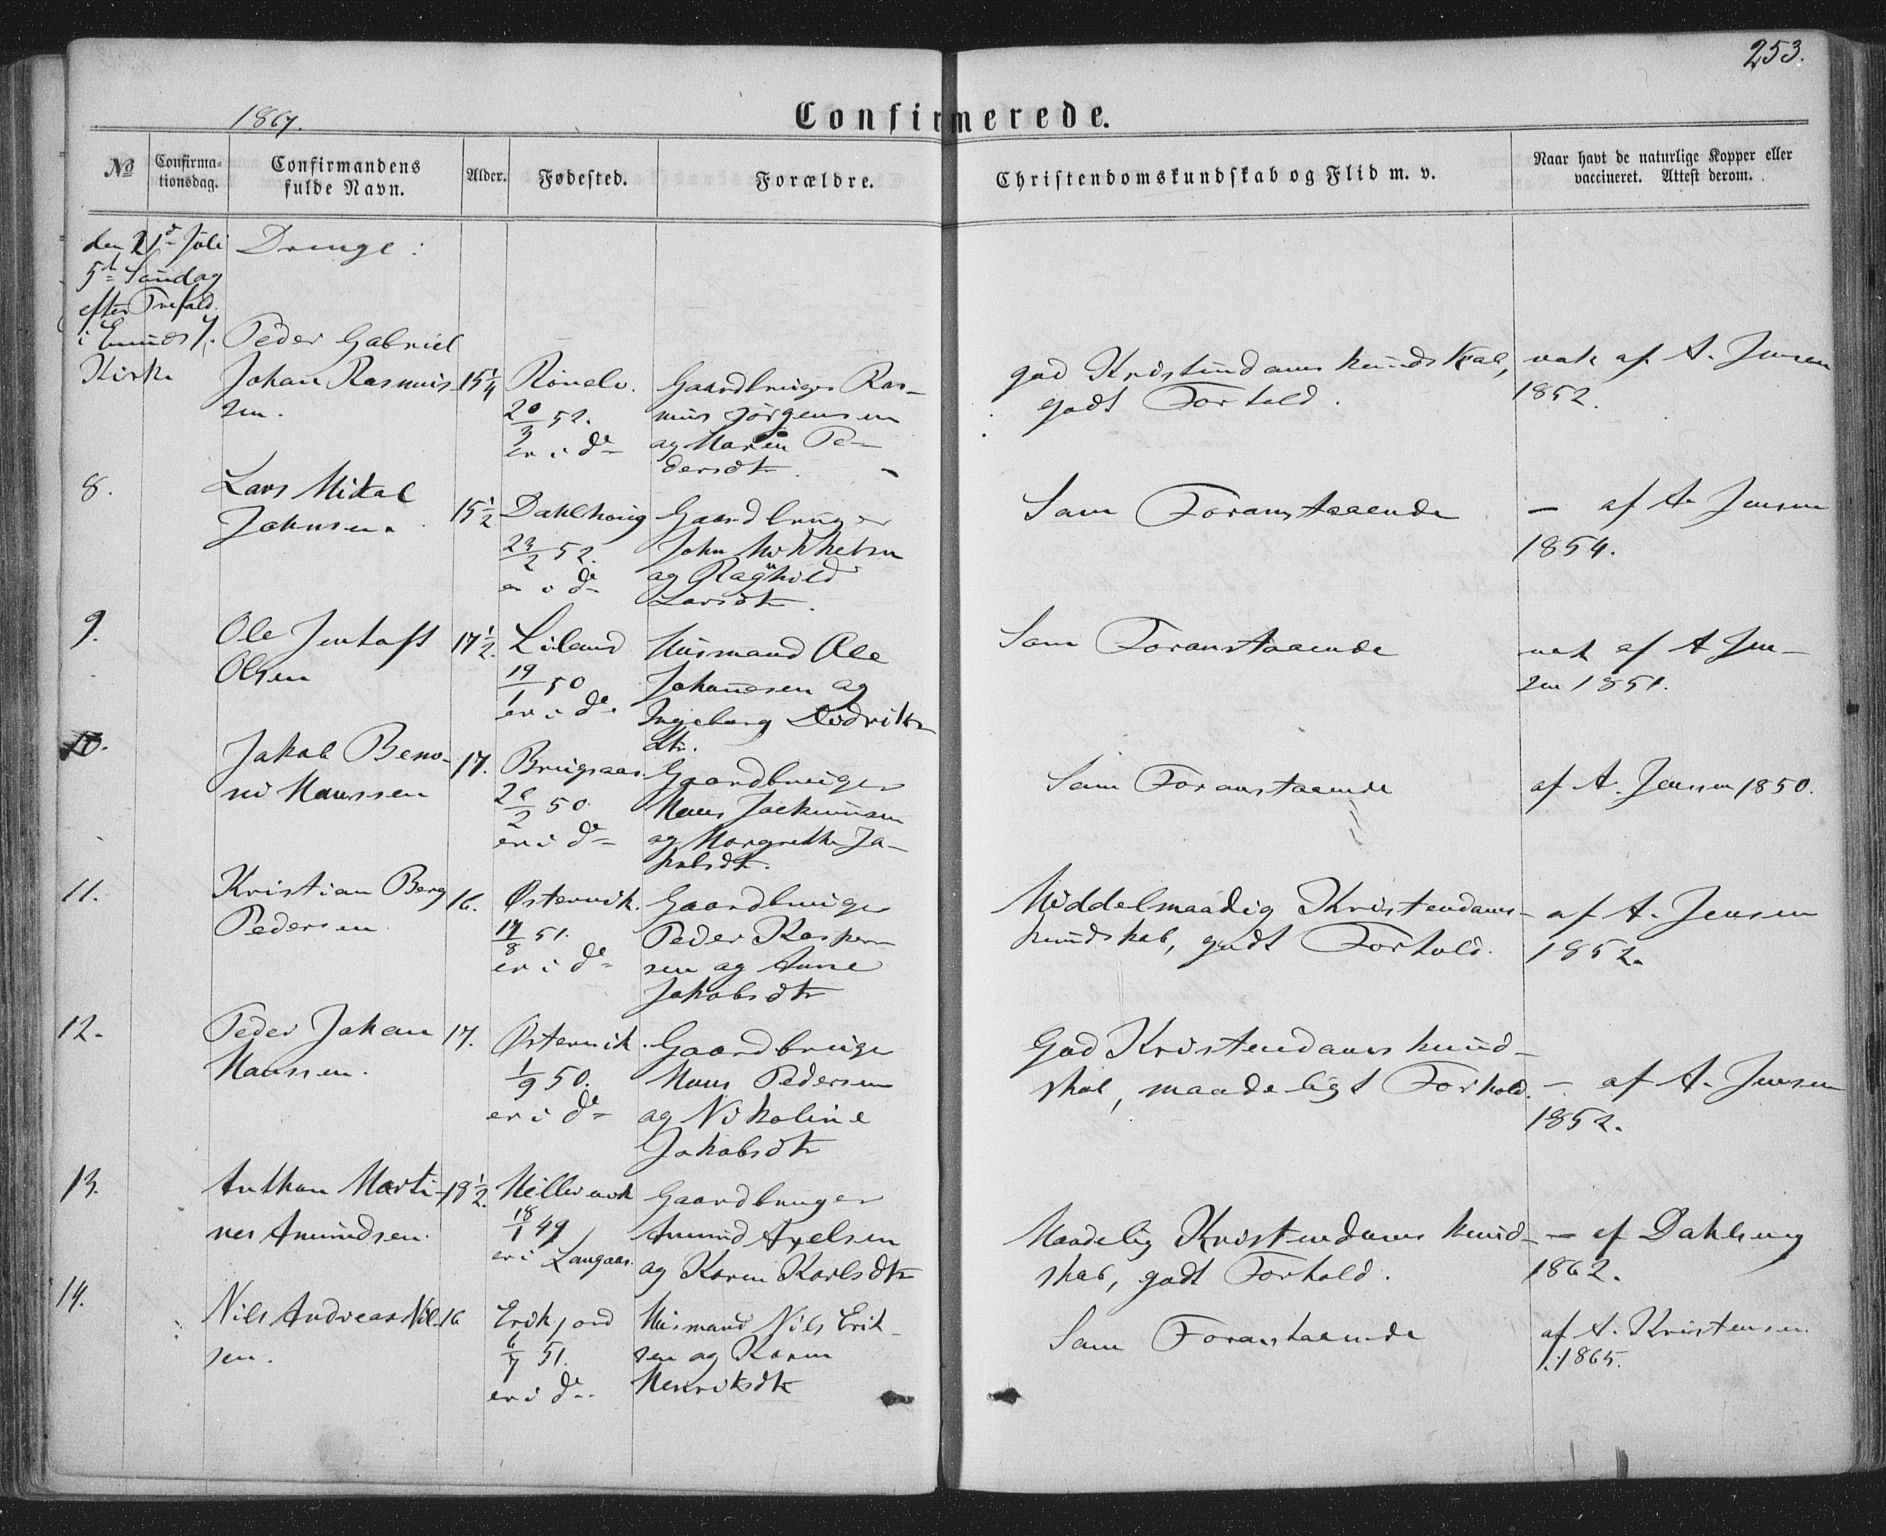 253.
1867.
Confirmerede.
No
Confirma-
tionsdag.
Confirmandens
fulde Navn.
Alder.
Fødested.
Forældre.
Christendomskundskab og Flid m. v.
Naar havt de naturlige Kopper eller
vaccineret. Attest derom.
den 21d Juli
5t Søndag
efter Trefold.
i
Kirke
Drenge:
7.
Peder Gabriel
Johan Rasmus-
sen.
15 1/4
20/3 52.
er i do
Gaardbruger Ras-
mus Jørgensen
og Maren Pe-
dersdtr.
god Kristendomskundskab,
godt Forhold.
vak af A. Jensen
1852.
8.
Lars Mikal
Johnsen.
15 1/2
Dahlhoug
23/2 52.
er i do
Gaardbruger
John Mikkelsen
og Ragnhild
Larsdtr.
Som Foranstaaende
— af A. Jensen
1854.
9.
Ole Jentoft
Olsen
17 1/2.
Liland
19/1 50
er i do
Husmand Ole
Johannesen og
Ingeborg Didriks-
dtr.
Som Foranstaaende
vak af A Jen-
sen 1851.
10.
Jakob Beno-
ni Hanssen
17.
50.
er i do
Gaardbruger
Hans Joekimsen
og Margrethe Ja-
kobsdtr.
Som Foranstaaende
af A. Jensen 1850.
11.
Kristian Berg
Pedersen
16.
Østervik.
17/8 51.
er i do
Gaardbruger
Peder Kasper-
sen og Anne
Jakobsdtr
Middelmaadig Kristendoms-
kundskab, godt Forhold.
af A. Jensen
1852.
12.
Peder Johan
Hanssen.
17.
Østervik
1/9 50.
er i do
Gaardbruger
Hans Pedersen
og Nikoline
Jakobsdtr
God Kristendomskund-
skab, maadeligt Forhold.
— af A. Jensen
1852.
13.
Anthon Marti-
nes Amundsen.
18 1/2.
18/1 49
er i Langaas.
Gaardbruger
Amund Axelsen
og Karen Karlsdtr
Maadelig Kristendomskund-
skab, godt Forhold.
— af Dahlseng
1862.
14.
Nils Andreas Nil-
sen.
16
Erikjord
6/7 51.
er i do
Husmand Nils Erik-
sen og Karen
Henriksdtr
Som Foranstaaende
af A. Kristensen
1865.